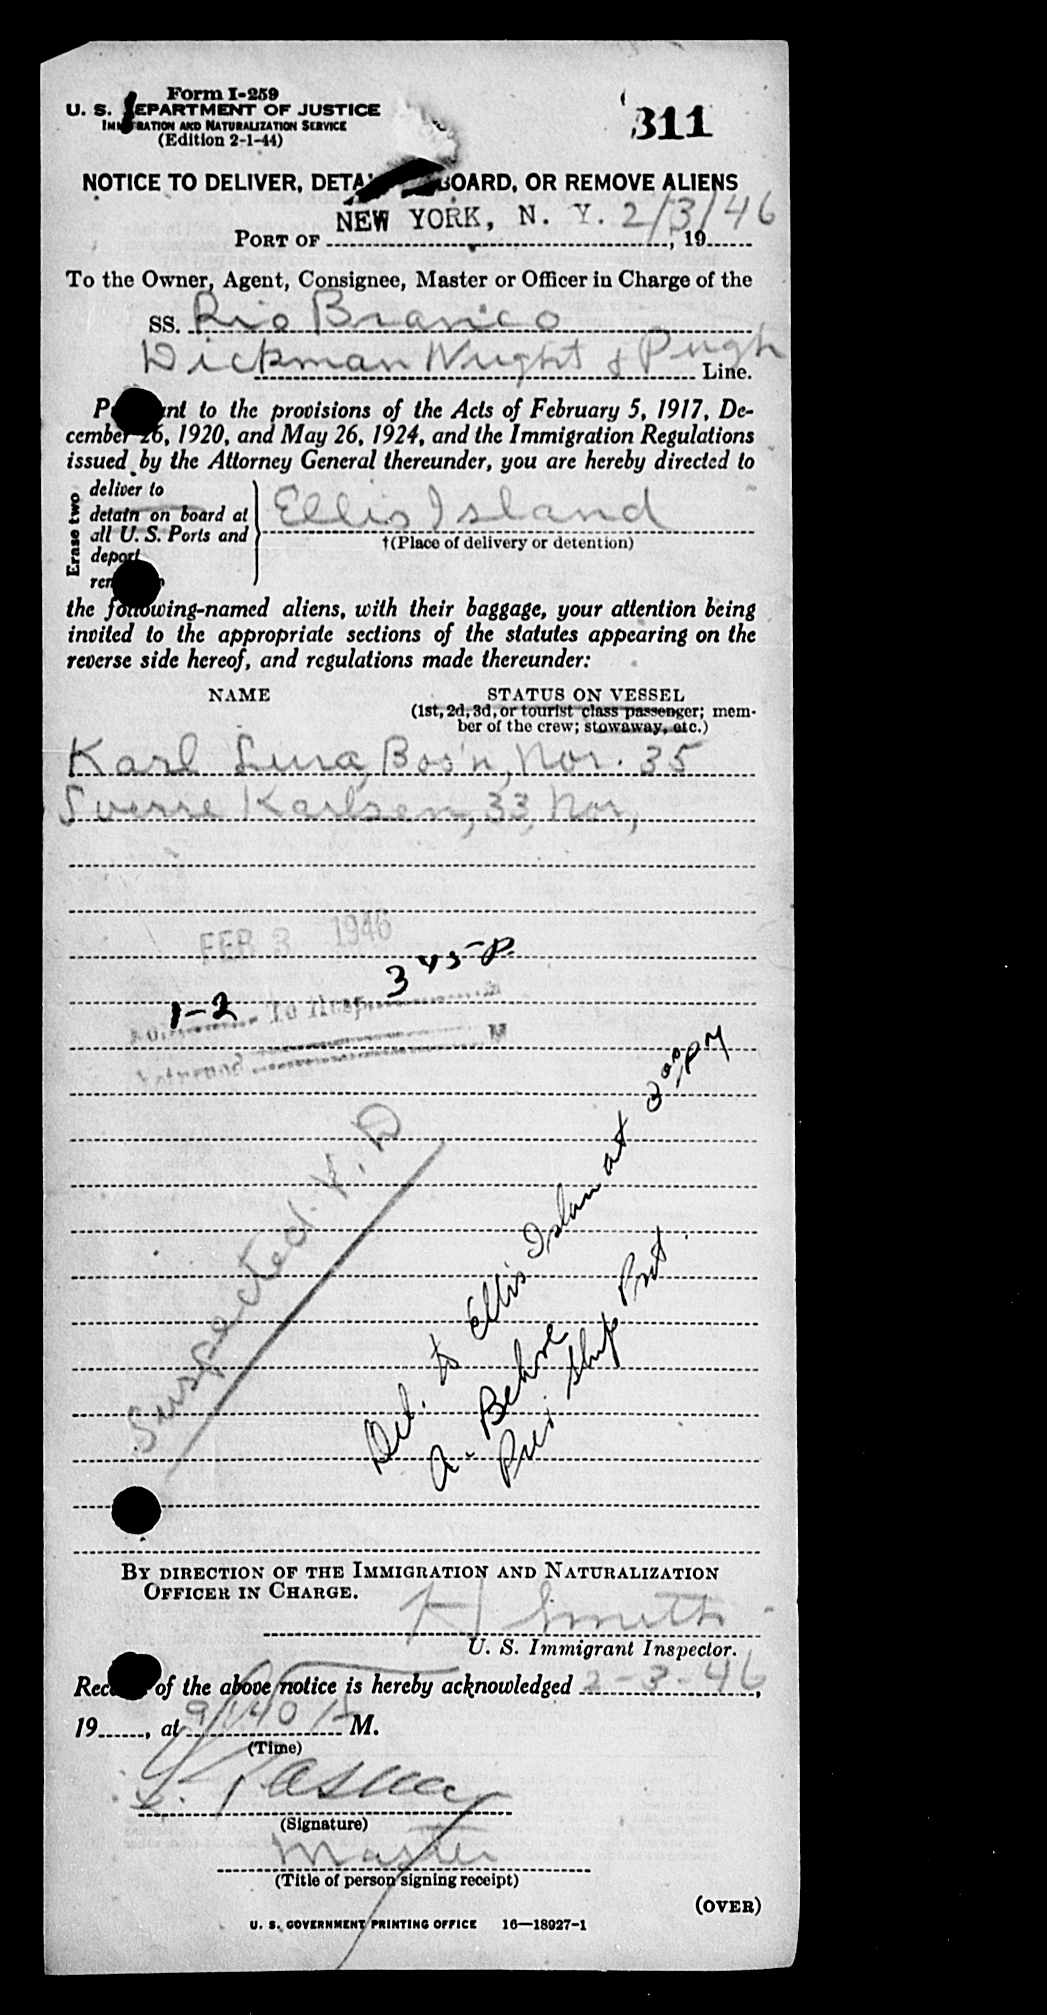 Form I-259
U. S. DEPARTMENT OF JUSTICE
IMMIGRATION AND NATURALIZATION SERVICE
(Edition 2-1-44)
311
NOTICE TO DELIVER, DETAIN BOARD, OR REMOVE ALIENS
PORT OF NEW YORK, N. Y. 2/3/46, 19
To the Owner, Agent, Consignee, Master or Officer in Charge of the
SS. Rio Branco
Dickman Wright & Pugh Line.
Pursuant to the provisions of the Acts of February 5, 1917, De-
cember 26, 1920, and May 26, 1924, and the Immigration Regulations
issued by the Attorney General thereunder, you are hereby directed to
Erase two
deliver to
detain on board at
all U. S. Ports and
deport
Ellis Island
†(Place of delivery or detention)
the following-named aliens, with their baggage, your attention being
invited to the appropriate sections of the statutes appearing on the
reverse side hereof, and regulations made thereunder:
NAME
STATUS ON VESSEL
(1st, 2d, 3d, or tourist class passenger; mem-
ber of the crew; stowaway, etc.)
Karl Lura, Bos'n, Nor. 35
Sverre Karlsen, 33, Nor,
FEB 3 1946
3 45 P.
1-2
No. To Hosp.
Suspected V. D
Del. to Ellis Islan at 3 00 PM
A. Behre
Pri. Ship Prot.
BY DIRECTION OF THE IMMIGRATION AND NATURALIZATION
OFFICER IN CHARGE.
H Smith
U. S. Immigrant Inspector.
Receipt of the above notice is hereby acknowledged 2-3-46,
19, at 9/40 A M.
(Time)
(Signature)
Master
(Title of person signing receipt)
(OVER)
U. S. GOVERNMENT PRINTING OFFICE 16—18927-1